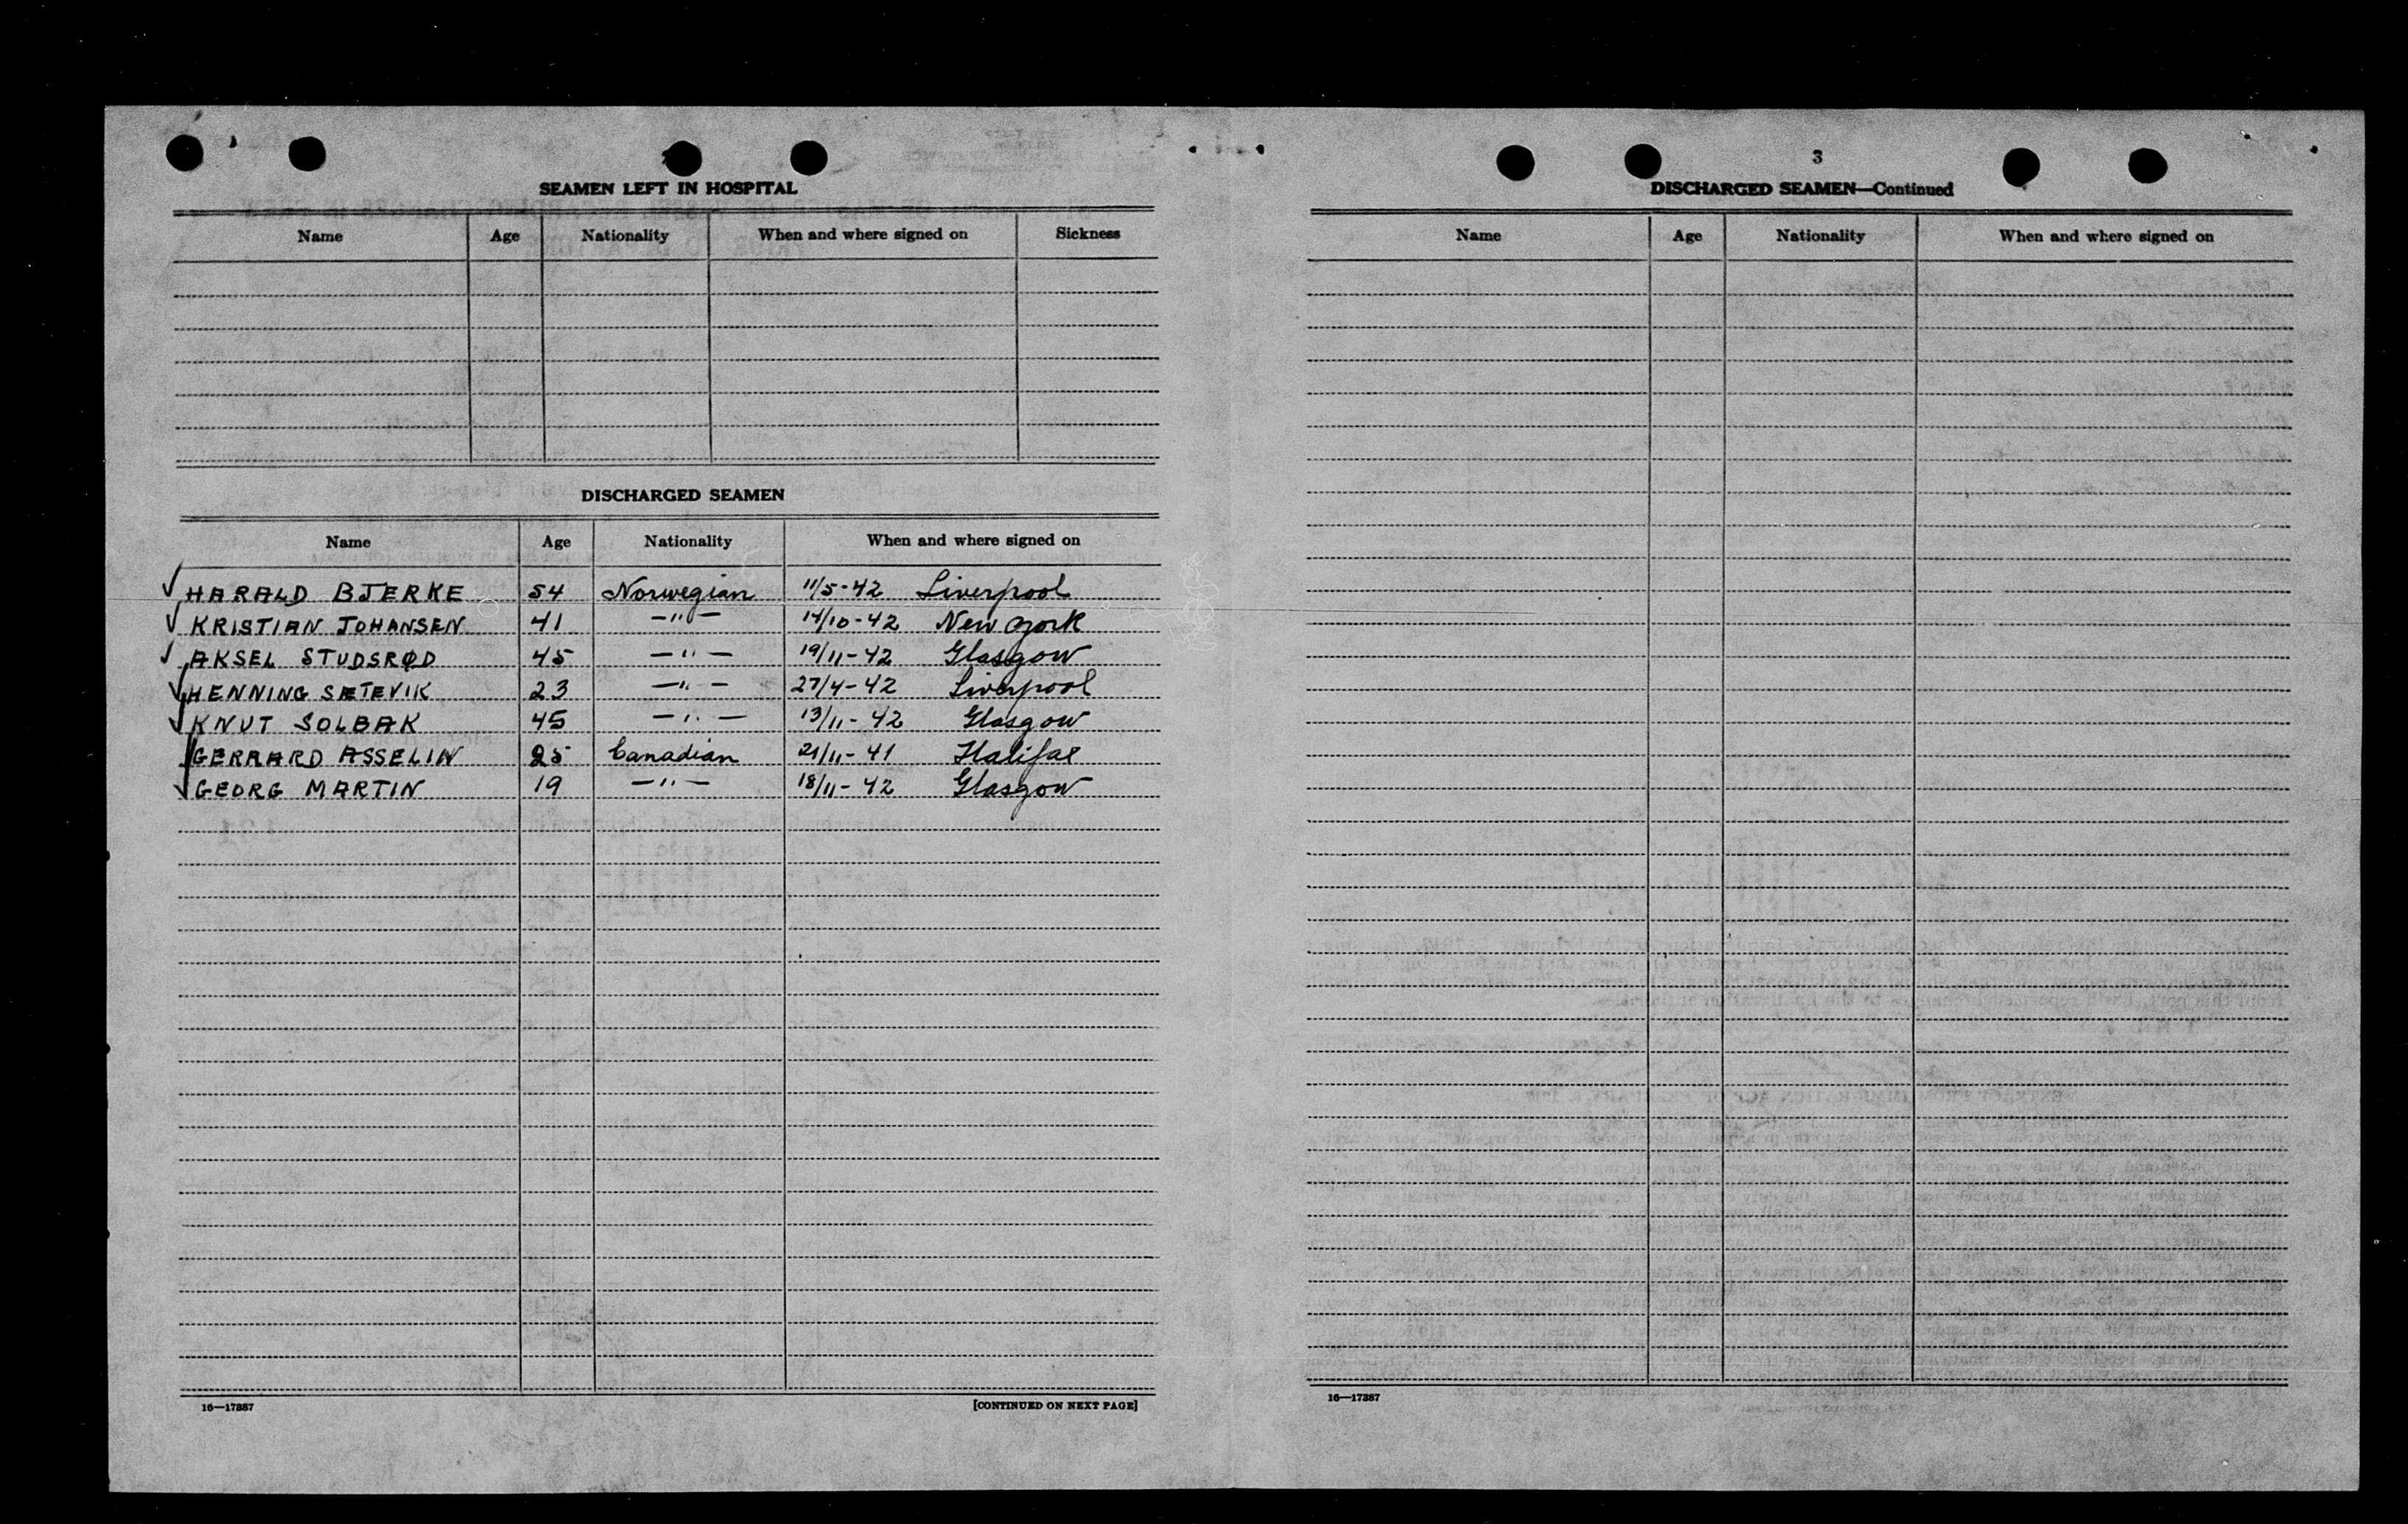 SEAMEN LEFT IN HOSPITAL
Name Age Nationality When and where signed on Sickness
DISCHARGED SEAMEN
Name Age Nationality When and where signed on
✓ HARALD BJERKE 54 Norwegian 11/5-42 Liverpool
✓ KRISTIAN JOHANSEN 41 —"— 14/10-42 New York
✓ AKSEL STUDSRØD 45 —"— 19/11-42 Glasgow
✓ HENNING SÆTEVIK 23 —"— 27/4-42 Liverpool
✓ KNUT SOLBAK 45 —"— 13/11-42 Glasgow
GERRARD ASSELIN 25 Canadian 21/11-41 Halifax
✓ GEORG MARTIN 19 —"— 18/11-42 Glasgow
16—17387 [CONTINUED ON NEXT PAGE]
3
DISCHARGED SEAMEN—Continued
Name Age Nationality When and where signed on
16—17387